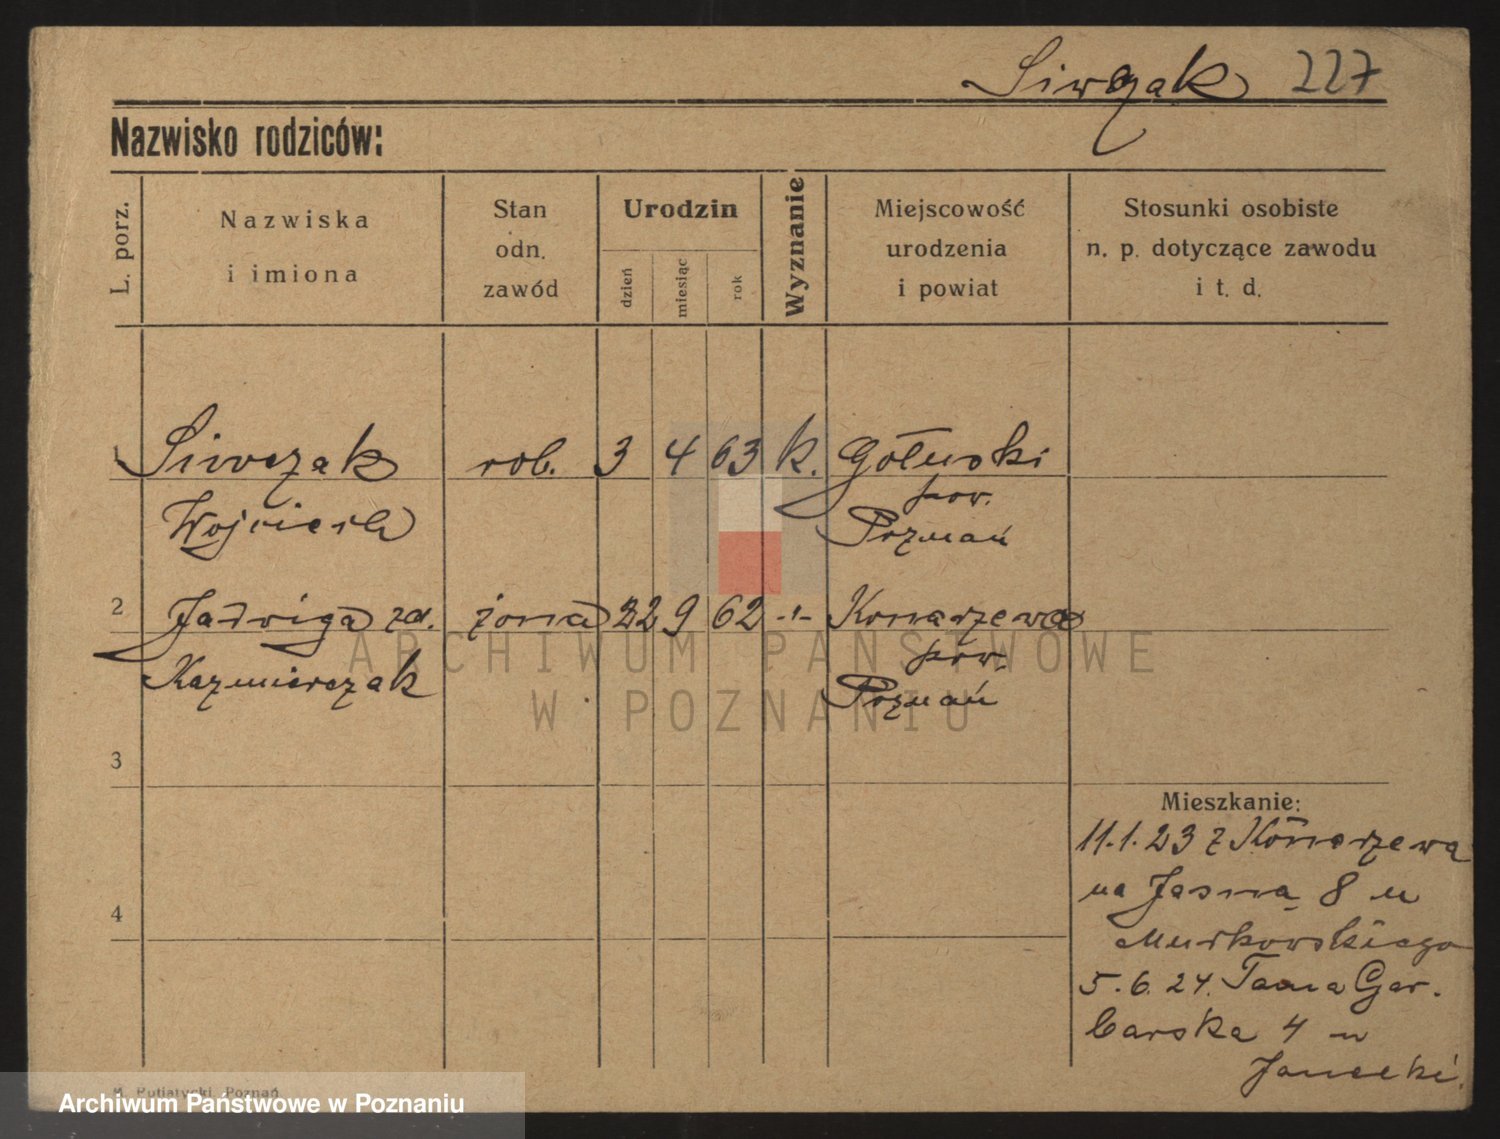 Siwczak 227
Nazwisko rodziców:
L. porz.
Nazwiska
i imiona
Stan
odn.
zawód
Urodzin
dzień
miesiąc
rok
Wyznanie
Miejscowość
urodzenia
i powiat
Stosunki osobiste
n. p. dotyczące zawodu
i t. d.
1 Siwczak rob. 3 4 63 k. Gołuski
pow.
Wojciech Poznań
2 Jadwiga zd. żona 22 9 62 -"- Konarzewo
pow.
Kaźmierczak Poznań
3
4
Mieszkanie:
11.1.23 z Konarzewa
na Jasną 8 u
Murkowskiego
5.6.24. Tama Gar-
barska 4 u
Janecki.
ARCHIWUM PAŃSTWOWE
W POZNANIU
M. Putiatycki, Poznań
Archiwum Państwowe w Poznaniu